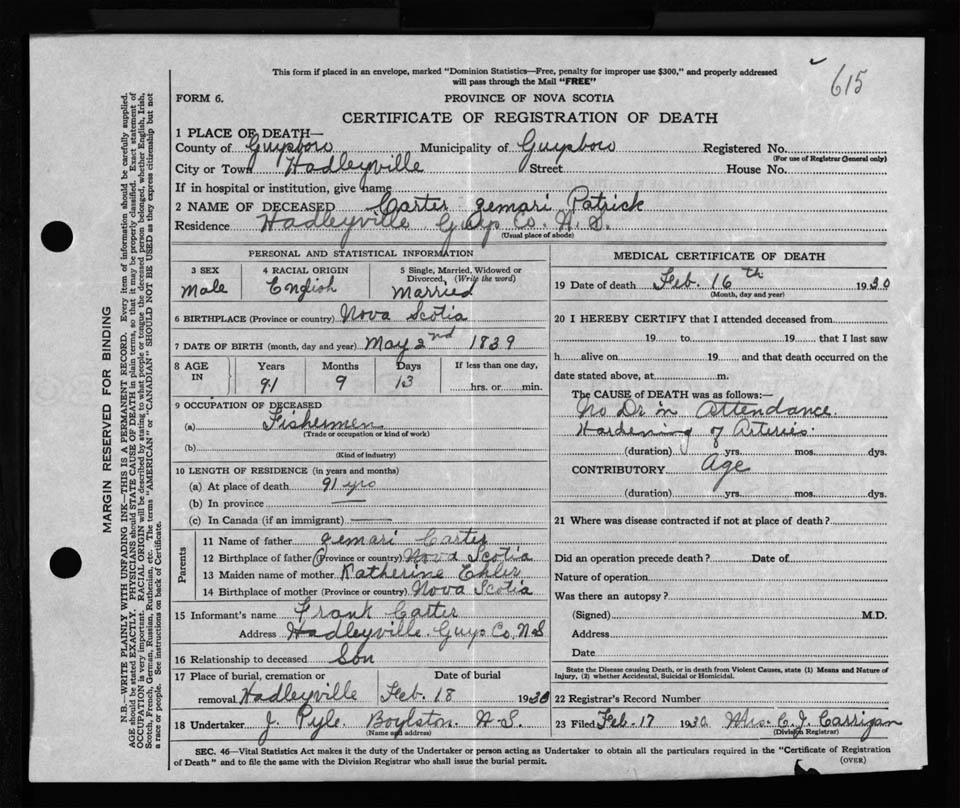 615
This form if placed in an envelope, marked "Dominion Statistics—Free, penalty for improper use $300," and properly addressed
will pass through the Mail "FREE"
FORM 6.
PROVINCE OF NOVA SCOTIA
CERTIFICATE OF REGISTRATION OF DEATH
1 PLACE OF DEATH—
County of Guysboro Municipality of Guysboro Registered No.
(For use of Registrar General only)
City or Town Hadleyville Street House No.
If in hospital or institution, give name
2 NAME OF DECEASED Carter Jemari Patrick
Residence Hadleyville Guys Co. N.S.
(Usual place of abode)
PERSONAL AND STATISTICAL INFORMATION
3 SEX 4 RACIAL ORIGIN 5 Single, Married, Widowed or
Divorced, (Write the word)
Male English Married
6 BIRTHPLACE (Province or country) Nova Scotia
7 DATE OF BIRTH (month, day and year) May 2nd 1839
8 AGE IN Years Months Days If less than one day,
91 9 13 hrs. or min.
9 OCCUPATION OF DECEASED
(a) Fishermen
(Trade or occupation or kind of work)
(b)
(Kind of industry)
10 LENGTH OF RESIDENCE (in years and months)
(a) At place of death 91 yrs
(b) In province —
(c) In Canada (if an immigrant) —
Parents
11 Name of father Jemari Carter
12 Birthplace of father (Province or country) Nova Scotia
13 Maiden name of mother Katherine Ehler
14 Birthplace of mother (Province or country) Nova Scotia
15 Informant's name Frank Carter
Address Hadleyville Guys Co. N.S
16 Relationship to deceased Son
17 Place of burial, cremation or Date of burial
removal Hadleyville Feb. 18 1930
18 Undertaker J. Pyle Boylston N.S.
(Name and address)
MEDICAL CERTIFICATE OF DEATH
19 Date of death Feb. 16th 1930
(Month, day and year)
20 I HEREBY CERTIFY that I attended deceased from
19 to 19 that I last saw
h alive on 19 and that death occurred on the
date stated above, at m.
The CAUSE OF DEATH was as follows:—
No Dr in Attendance.
Hardening of Arteries.
(duration) yrs. mos. dys.
CONTRIBUTORY Age
(duration) yrs. mos. dys.
21 Where was disease contracted if not at place of death?
Did an operation precede death? Date of
Nature of operation
Was there an autopsy?
(Signed) M.D.
Address
Date
State the Disease causing Death, or in death from Violent Causes, state (1) Means and Nature of
Injury, (2) whether Accidental, Suicidal or Homicidal.
22 Registrar's Record Number
23 Filed Feb. 17 1930 Mrs. C. J. Carrigan
(Division Registrar)
SEC. 46—Vital Statistics Act makes it the duty of the Undertaker or person acting as Undertaker to obtain all the particulars required in the "Certificate of Registration
of Death" and to file the same with the Division Registrar who shall issue the burial permit.
(OVER)
MARGIN RESERVED FOR BINDING
N.B.—WRITE PLAINLY WITH UNFADING INK—THIS IS A PERMANENT RECORD. Every item of information should be carefully supplied.
AGE should be stated EXACTLY. PHYSICIANS should STATE CAUSE OF DEATH in plain terms, so that it may be properly classified. Exact statement of
OCCUPATION is very important. RACIAL ORIGIN will be described by stating to what people or tongue the deceased person belonged, whether English, Irish,
Scotch, French, German, Russian, Ruthenian, etc. The terms "AMERICAN" or "CANADIAN" SHOULD NOT BE USED as they express citizenship but not
a race or people. See instructions on back of Certificate.